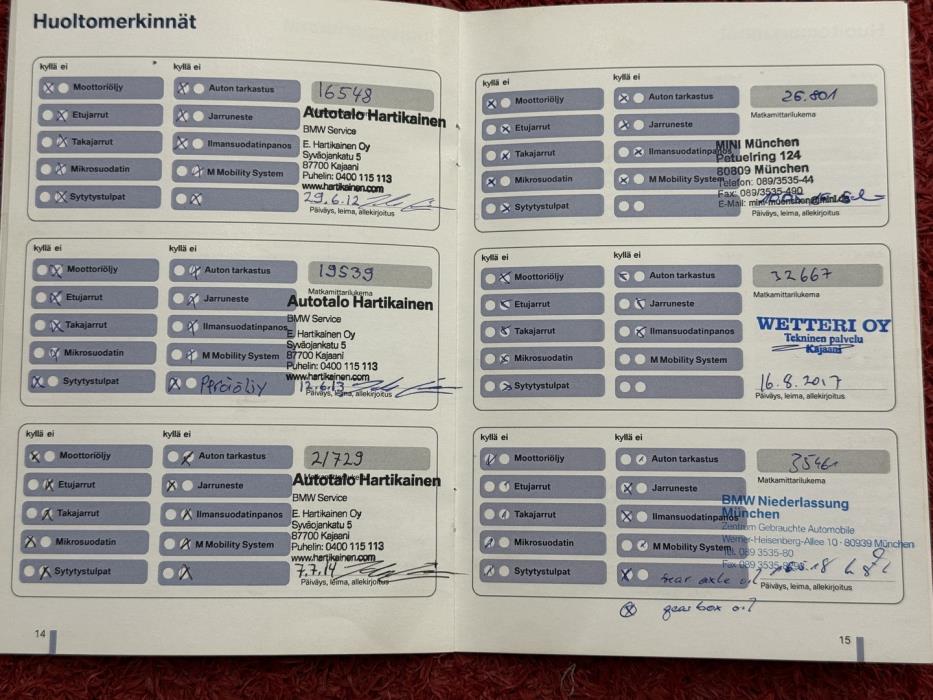 Huoltomerkinnät
kyllä ei kyllä ei
Moottoriöljy Auton tarkastus 16548
Etujarrut Jarruneste
Takajarrut Ilmansuodatinpanos
Mikrosuodatin M Mobility System
Sytytystulpat
Autotalo Hartikainen
BMW Service
E. Hartikainen Oy
Syväojankatu 5
87700 Kajaani
Puhelin: 0400 115 113
www.hartikainen.com
29.6.12
Päiväys, leima, allekirjoitus
kyllä ei kyllä ei
Moottoriöljy Auton tarkastus 19539
Etujarrut Jarruneste
Takajarrut Ilmansuodatinpanos
Mikrosuodatin M Mobility System
Sytytystulpat Peräöljy
Matkamittarilukema
Autotalo Hartikainen
BMW Service
E. Hartikainen Oy
Syväojankatu 5
87700 Kajaani
Puhelin: 0400 115 113
www.hartikainen.com
12.6.13
Päiväys, leima, allekirjoitus
kyllä ei kyllä ei
Moottoriöljy Auton tarkastus 21729
Etujarrut Jarruneste
Takajarrut Ilmansuodatinpanos
Mikrosuodatin M Mobility System
Sytytystulpat
Autotalo Hartikainen
BMW Service
E. Hartikainen Oy
Syväojankatu 5
87700 Kajaani
Puhelin: 0400 115 113
www.hartikainen.com
7.7.14
Päiväys, leima, allekirjoitus
14
kyllä ei kyllä ei
Moottoriöljy Auton tarkastus 26.801
Etujarrut Jarruneste
Takajarrut Ilmansuodatinpanos
Mikrosuodatin M Mobility System
Sytytystulpat
Matkamittarilukema
MINI München
Petuelring 124
80809 München
Telefon: 089/3535-44
Fax: 089/3535-490
E-Mail:
Päiväys, leima, allekirjoitus
kyllä ei kyllä ei
Moottoriöljy Auton tarkastus 32667
Etujarrut Jarruneste
Takajarrut Ilmansuodatinpanos
Mikrosuodatin M Mobility System
Sytytystulpat
Matkamittarilukema
WETTERI OY
Tekninen palvelu
Kajaani
16.8.2017
Päiväys, leima, allekirjoitus
kyllä ei kyllä ei
Moottoriöljy Auton tarkastus 35461
Etujarrut Jarruneste
Takajarrut Ilmansuodatinpanos
Mikrosuodatin M Mobility System
Sytytystulpat rear axle oil
Matkamittarilukema
BMW Niederlassung
München
Zentrum Gebrauchte Automobile
Werner-Heisenberg-Allee 10 · 80939 München
Tel. 089 3535-80
Päiväys, leima, allekirjoitus
gear box oil
15